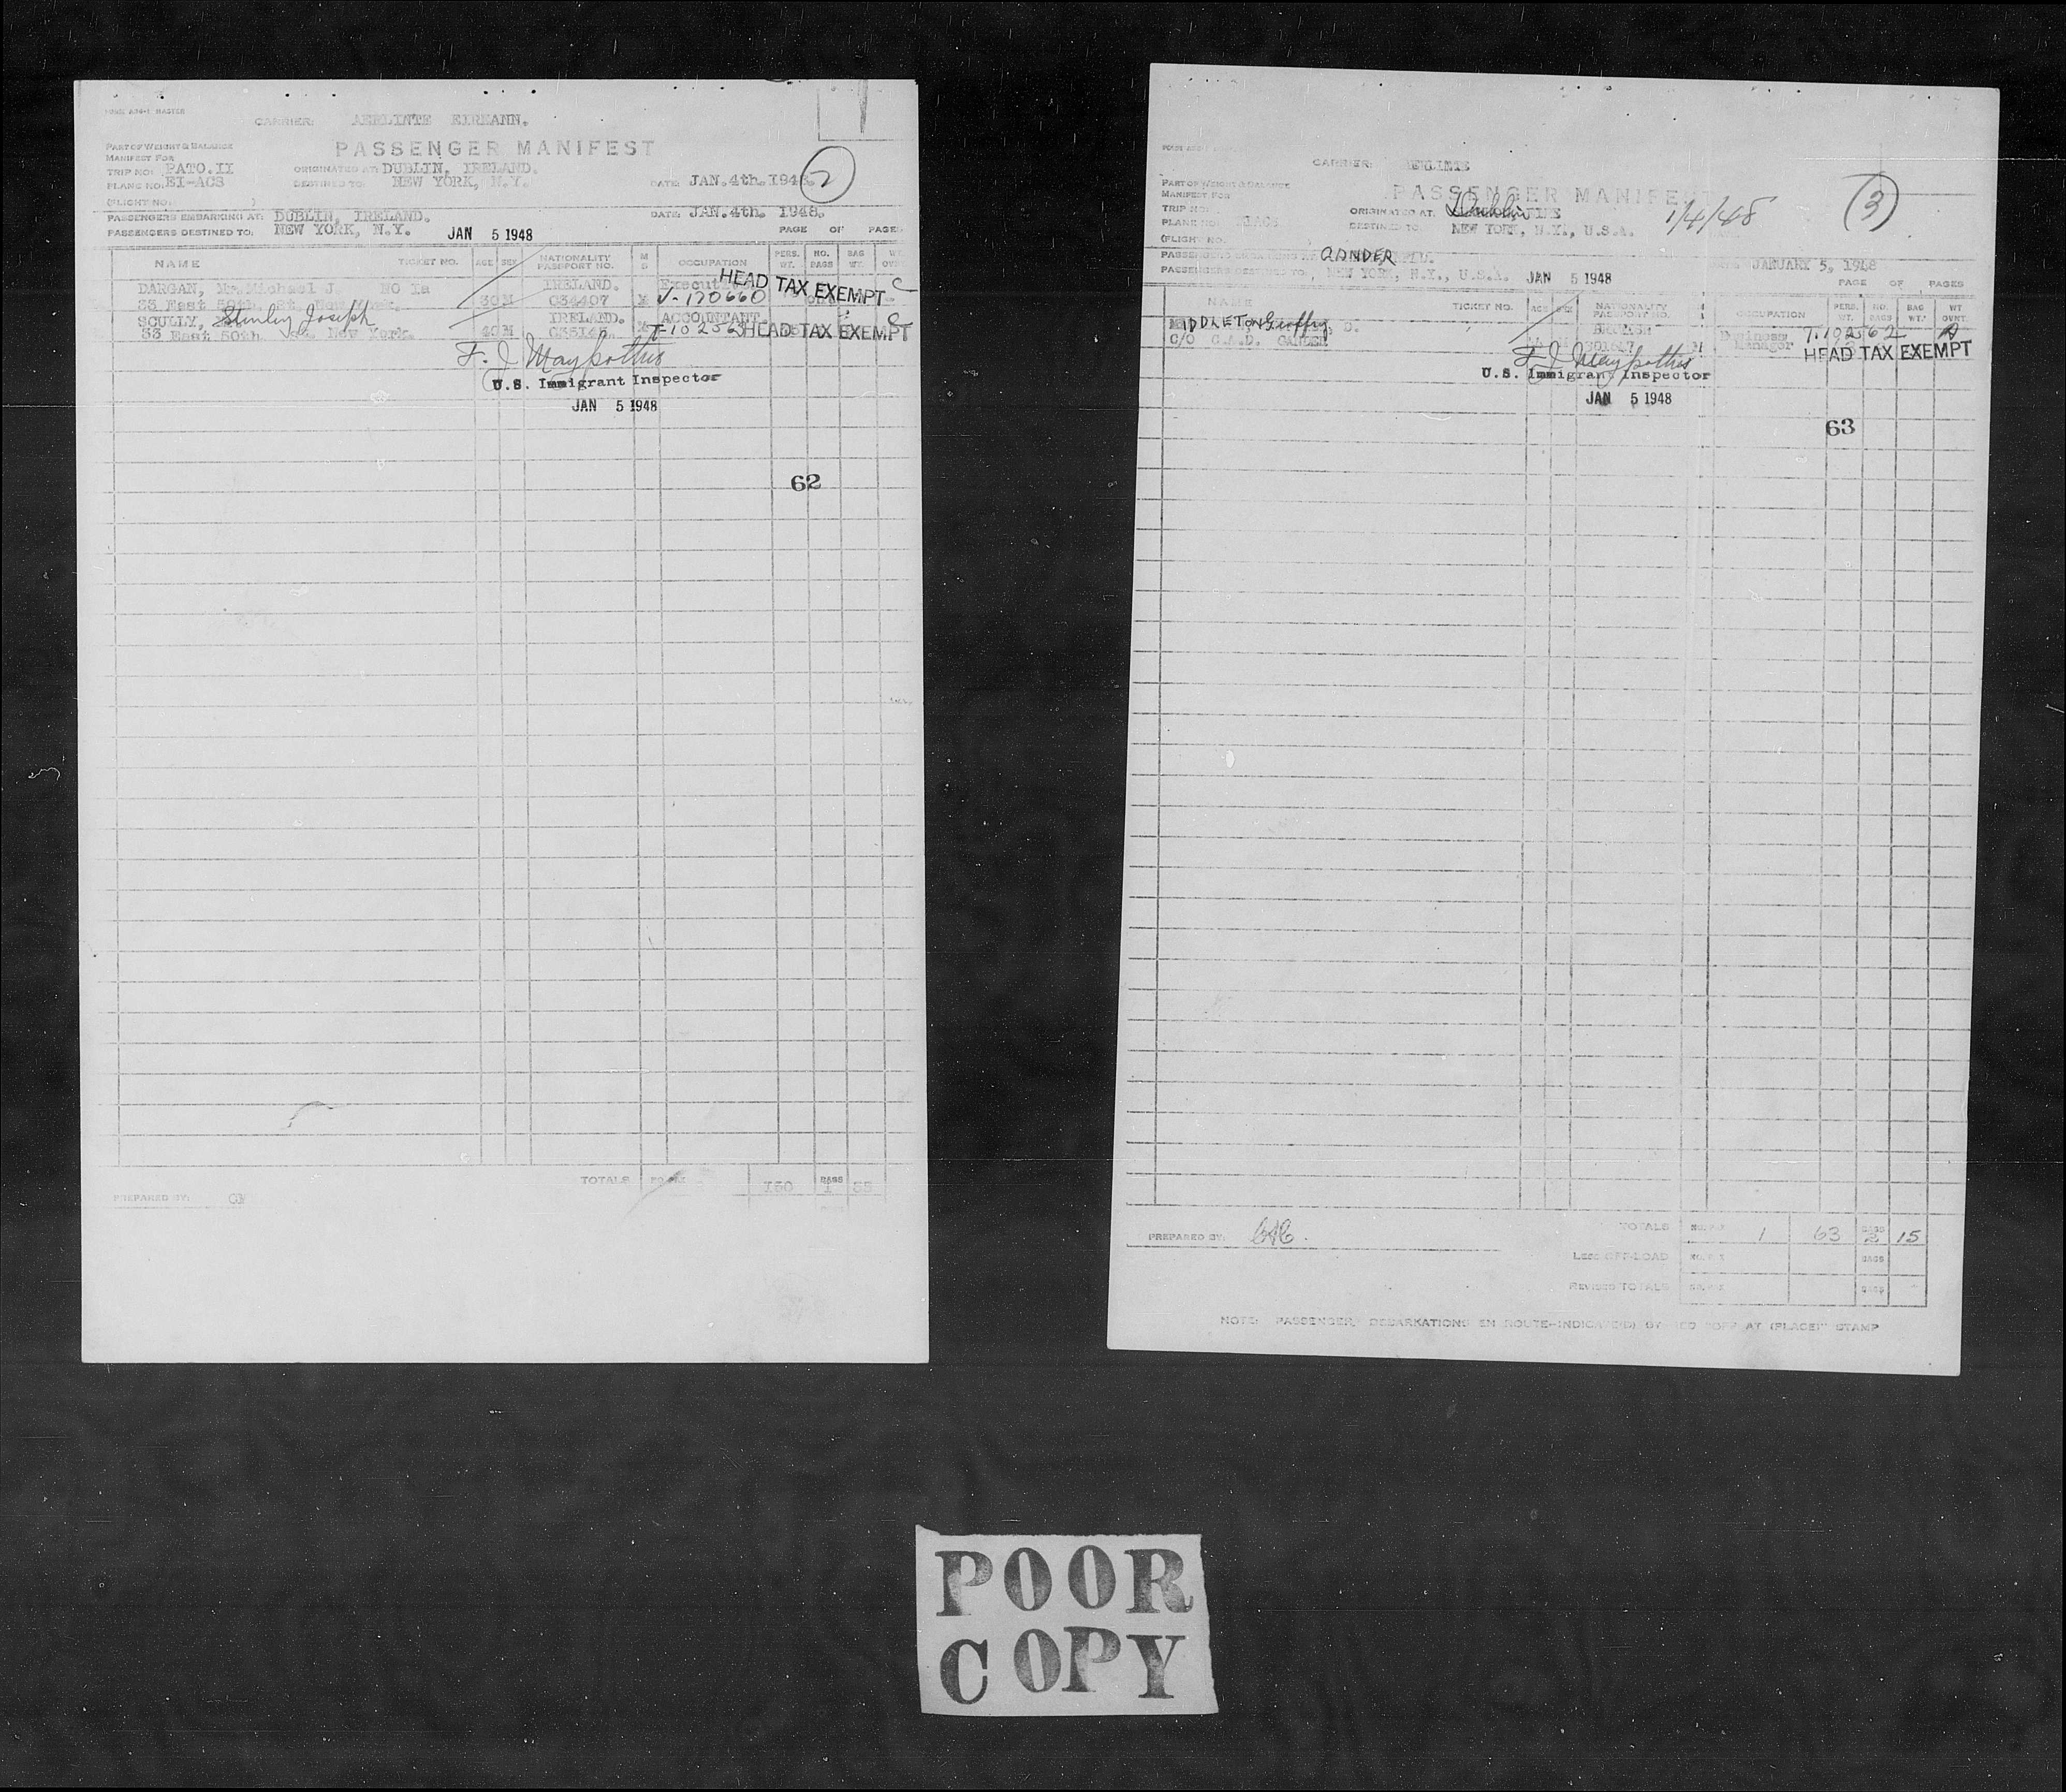 FORM A24-1 MASTER
CARRIER: AERLINTE EIREANN.
PASSENGER MANIFEST
PART OF WEIGHT & BALANCE
MANIFEST FOR
TRIP NO: PATO.II ORIGINATED AT: DUBLIN, IRELAND.
PLANE NO: EI-ACS DESTINED TO: NEW YORK, N.Y. DATE: JAN.4th.1948. 2
(FLIGHT NO. )
PASSENGERS EMBARKING AT: DUBLIN, IRELAND. DATE: JAN.4th. 1948.
PASSENGERS DESTINED TO: NEW YORK, N.Y. JAN 5 1948 PAGE OF PAGES
NAME TICKET NO. AGE SEX NATIONALITY PASSPORT NO. M S OCCUPATION PERS. WT. NO. BAGS BAG WT.
DARGAN, Mr. Michael J. IRELAND. HEAD TAX EXEMPT C
33 East 50th. St. New York. 30 M G34407 M V-170660
SCULLY, Stanley Joseph IRELAND. ACCOUNTANT. C
33 East 50th. New York. 40 M M T-102563 HEAD TAX EXEMPT
U.S. Immigrant Inspector
JAN 5 1948
62
TOTALS 150 BAGS 1
PREPARED BY:
CARRIER: AERLINTE
PART OF WEIGHT & BALANCE
MANIFEST FOR
PASSENGER MANIFEST
TRIP NO: ORIGINATED AT: Dublin 1/4/48 3
PLANE NO: DESTINED TO: NEW YORK, N.Y., U.S.A.
(FLIGHT NO.
GANDER JANUARY 5, 1948
PASSENGERS DESTINED TO: NEW YORK, N.Y., U.S.A. JAN 5 1948
PAGE OF PAGES
NAME TICKET NO. AGE SEX NATIONALITY PASSPORT NO. OCCUPATION PERS. WT. NO. BAGS BAG WT. WT OVNT.
MIDDLETON D. BRITISH Business T-102562 A
C/O C.A.D. GANDER M Manager HEAD TAX EXEMPT
U.S. Immigrant Inspector
JAN 5 1948
63
TOTALS 1 63 BAGS 2 15
PREPARED BY:
LESS OFF-LOAD BAGS
REVISED TOTALS BAGS
NOTE: PASSENGER DEBARKATIONS EN ROUTE-INDICATE(D) BY "OFF AT (PLACE)" STAMP
POOR
COPY